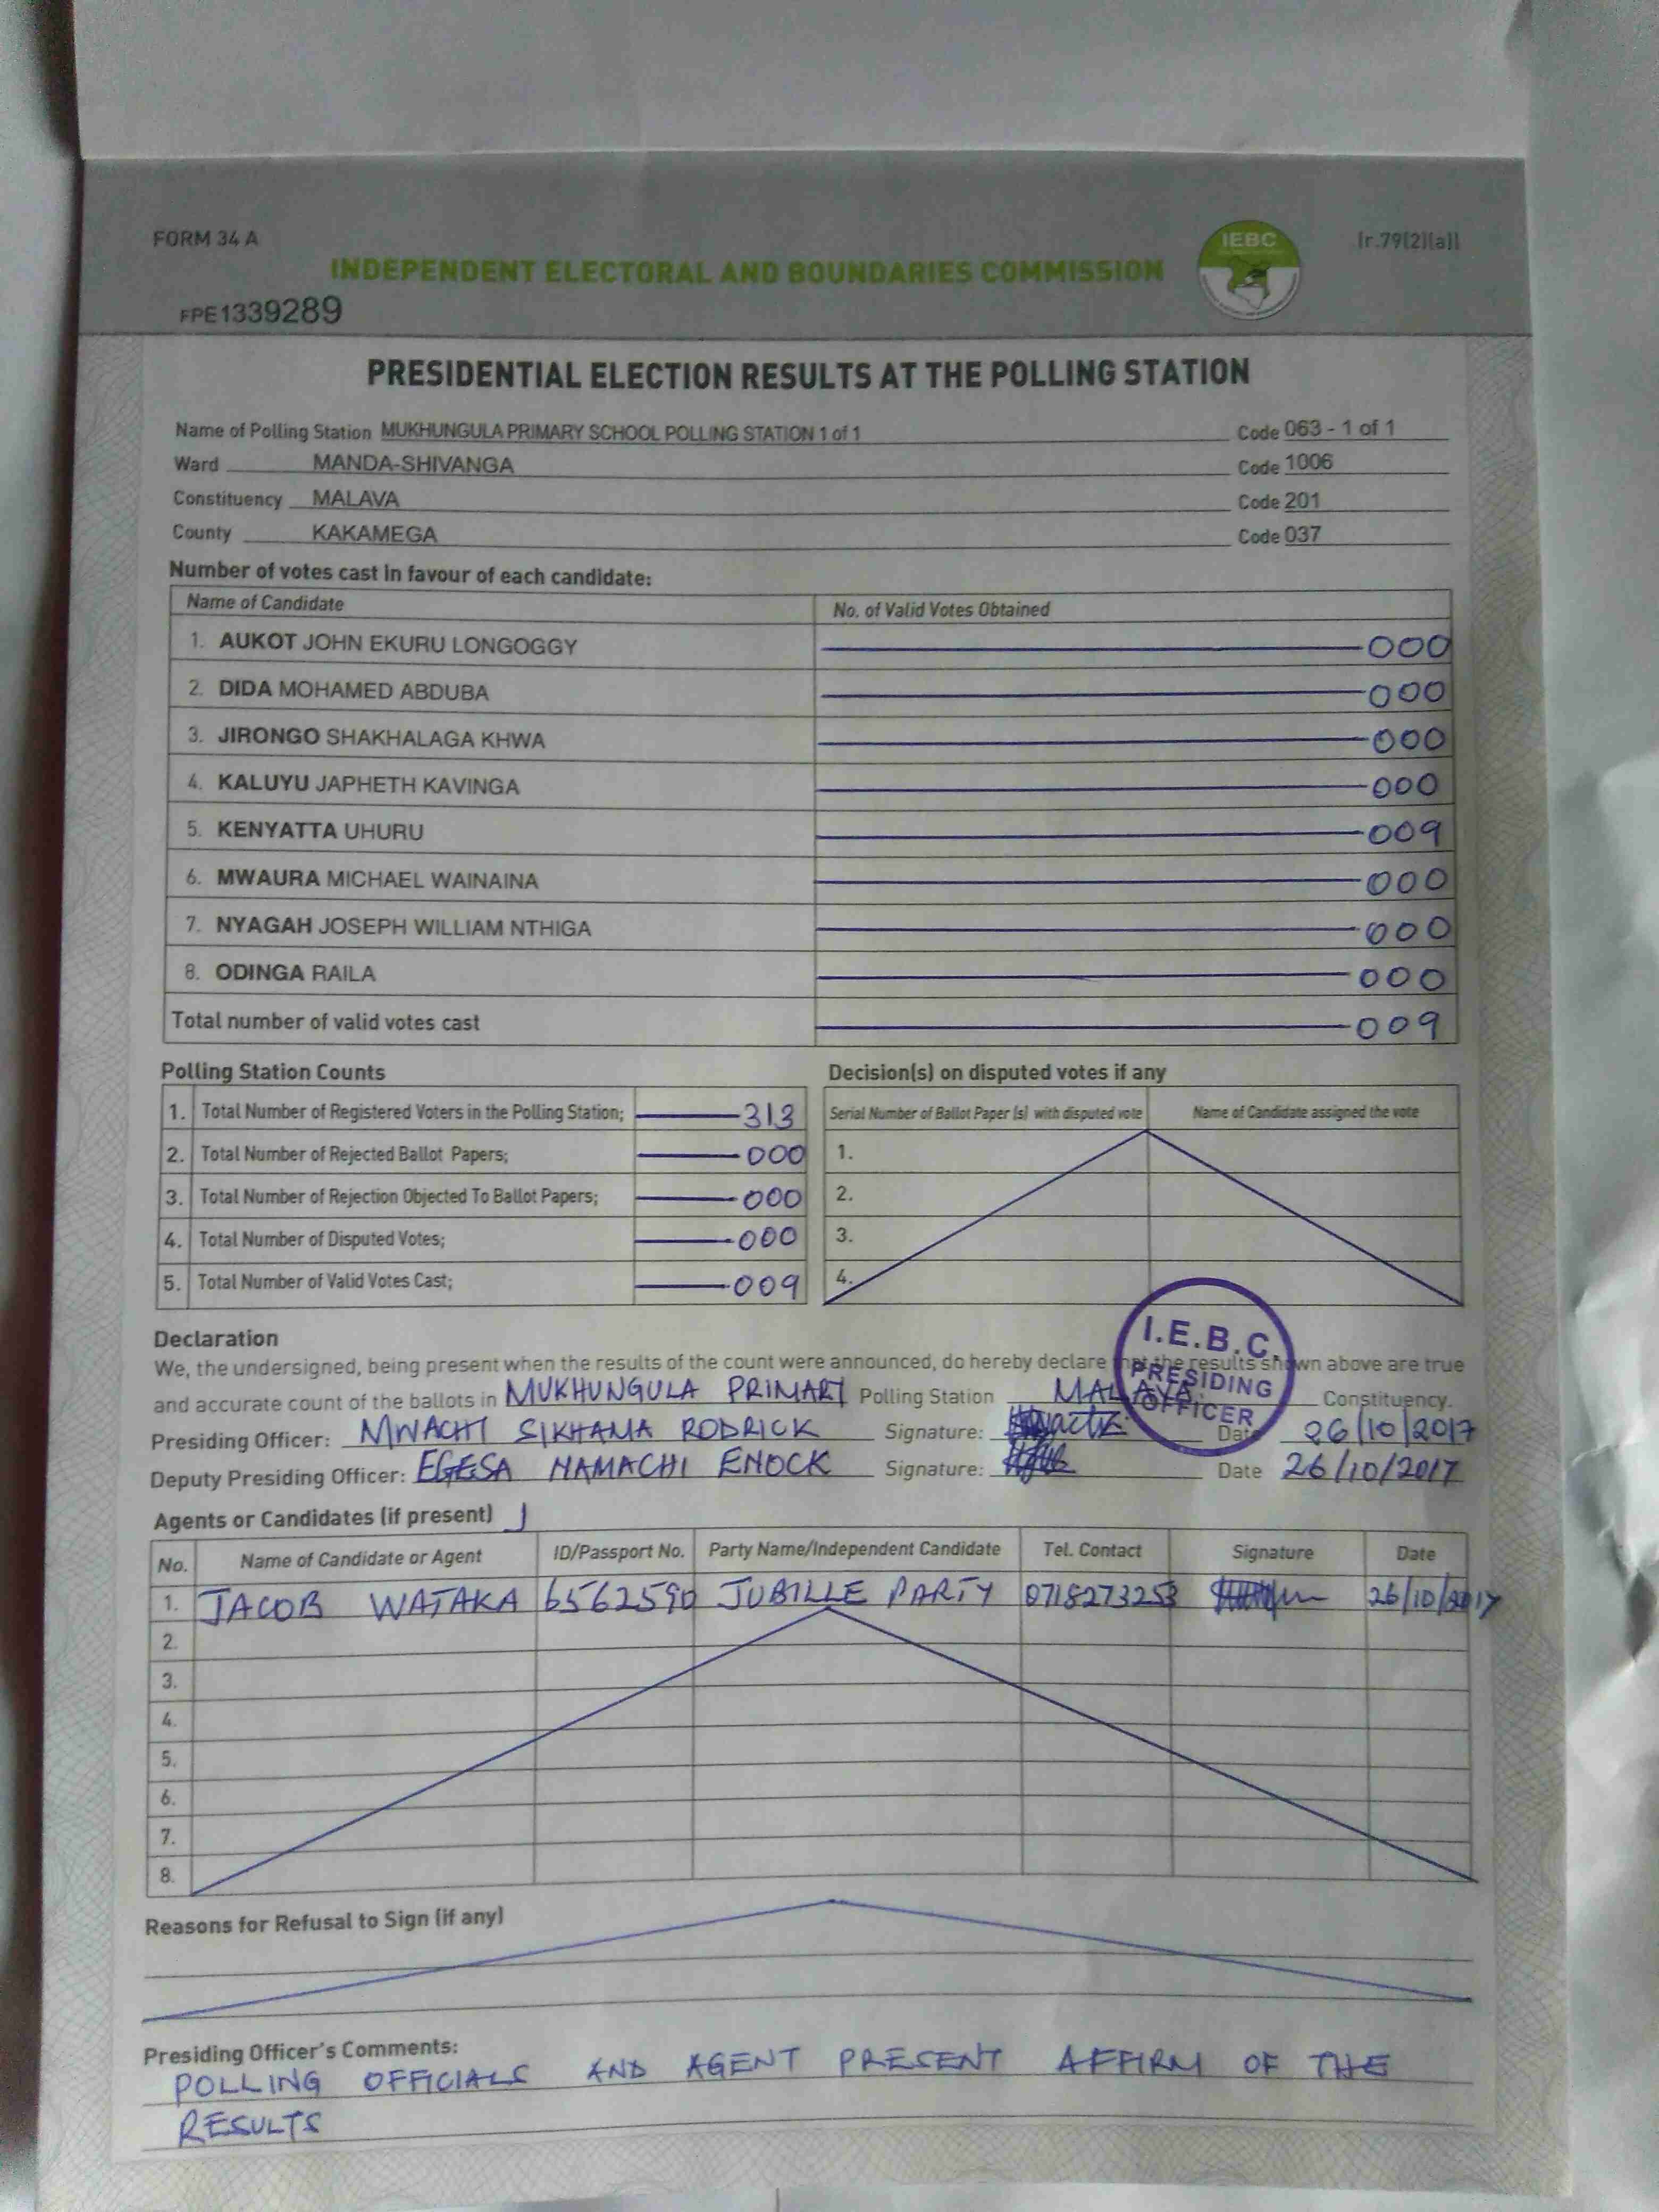 FORM 34 A
IEBC
[r.79(2)(a)]
INDEPENDENT ELECTORAL AND BOUNDARIES COMMISSION
FPE1339289
PRESIDENTIAL ELECTION RESULTS AT THE POLLING STATION
Name of Polling Station MUKHUNGULA PRIMARY SCHOOL POLLING STATION 1 of 1 Code 063 - 1 of 1
Ward MANDA-SHIVANGA Code 1006
Constituency MALAVA Code 201
County KAKAMEGA Code 037
Number of votes cast in favour of each candidate:
Name of Candidate No. of Valid Votes Obtained
1. AUKOT JOHN EKURU LONGOGGY 000
2. DIDA MOHAMED ABDUBA 000
3. JIRONGO SHAKHALAGA KHWA 000
4. KALUYU JAPHETH KAVINGA 000
5. KENYATTA UHURU 009
6. MWAURA MICHAEL WAINAINA 000
7. NYAGAH JOSEPH WILLIAM NTHIGA 000
8. ODINGA RAILA 000
Total number of valid votes cast 009
Polling Station Counts
1. Total Number of Registered Voters in the Polling Station; 313
2. Total Number of Rejected Ballot Papers; 000
3. Total Number of Rejection Objected To Ballot Papers; 000
4. Total Number of Disputed Votes; 000
5. Total Number of Valid Votes Cast; 009
Decision(s) on disputed votes if any
Serial Number of Ballot Paper (s) with disputed vote Name of Candidate assigned the vote
1.
2.
3.
4.
I.E.B.C.
PRESIDING
OFFICER
Declaration
We, the undersigned, being present when the results of the count were announced, do hereby declare that the results shown above are true
and accurate count of the ballots in MUKHUNGULA PRIMARY Polling Station MALAVA Constituency.
Presiding Officer: MWACHI SIKHAMA RODRICK Signature: Date 26/10/2017
Deputy Presiding Officer: EGESA NAMACHI ENOCK Signature: Date 26/10/2017
Agents or Candidates (if present) 1
No. Name of Candidate or Agent ID/Passport No. Party Name/Independent Candidate Tel. Contact Signature Date
1. JACOB WATAKA 6562590 JUBILLE PARTY 0718273253 26/10/2017
2.
3.
4.
5.
6.
7.
8.
Reasons for Refusal to Sign (if any)
Presiding Officer's Comments:
POLLING OFFICIALS AND AGENT PRESENT AFFIRM OF THE
RESULTS